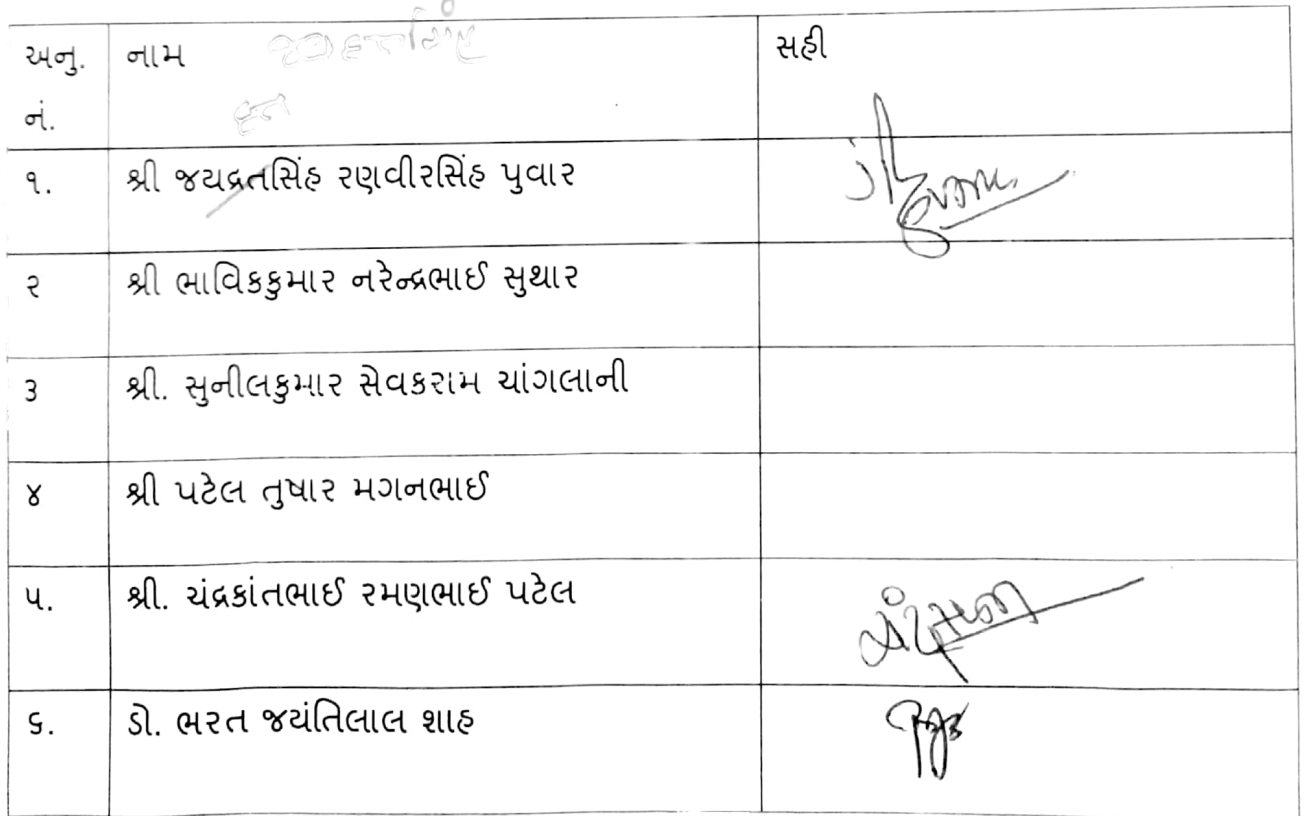 અનુ. નામ સહી
નં.
૧. શ્રી જયદ્રતસિંહ રણવીરસિંહ પુવાર
૨ શ્રી ભાવિકકુમાર નરેન્દ્રભાઈ સુથાર
૩ શ્રી. સુનીલકુમાર સેવકરામ ચાંગલાની
૪ શ્રી પટેલ તુષાર મગનભાઈ
૫. શ્રી. ચંદ્રકાંતભાઈ રમણભાઈ પટેલ
૬. ડો. ભરત જયંતિલાલ શાહ